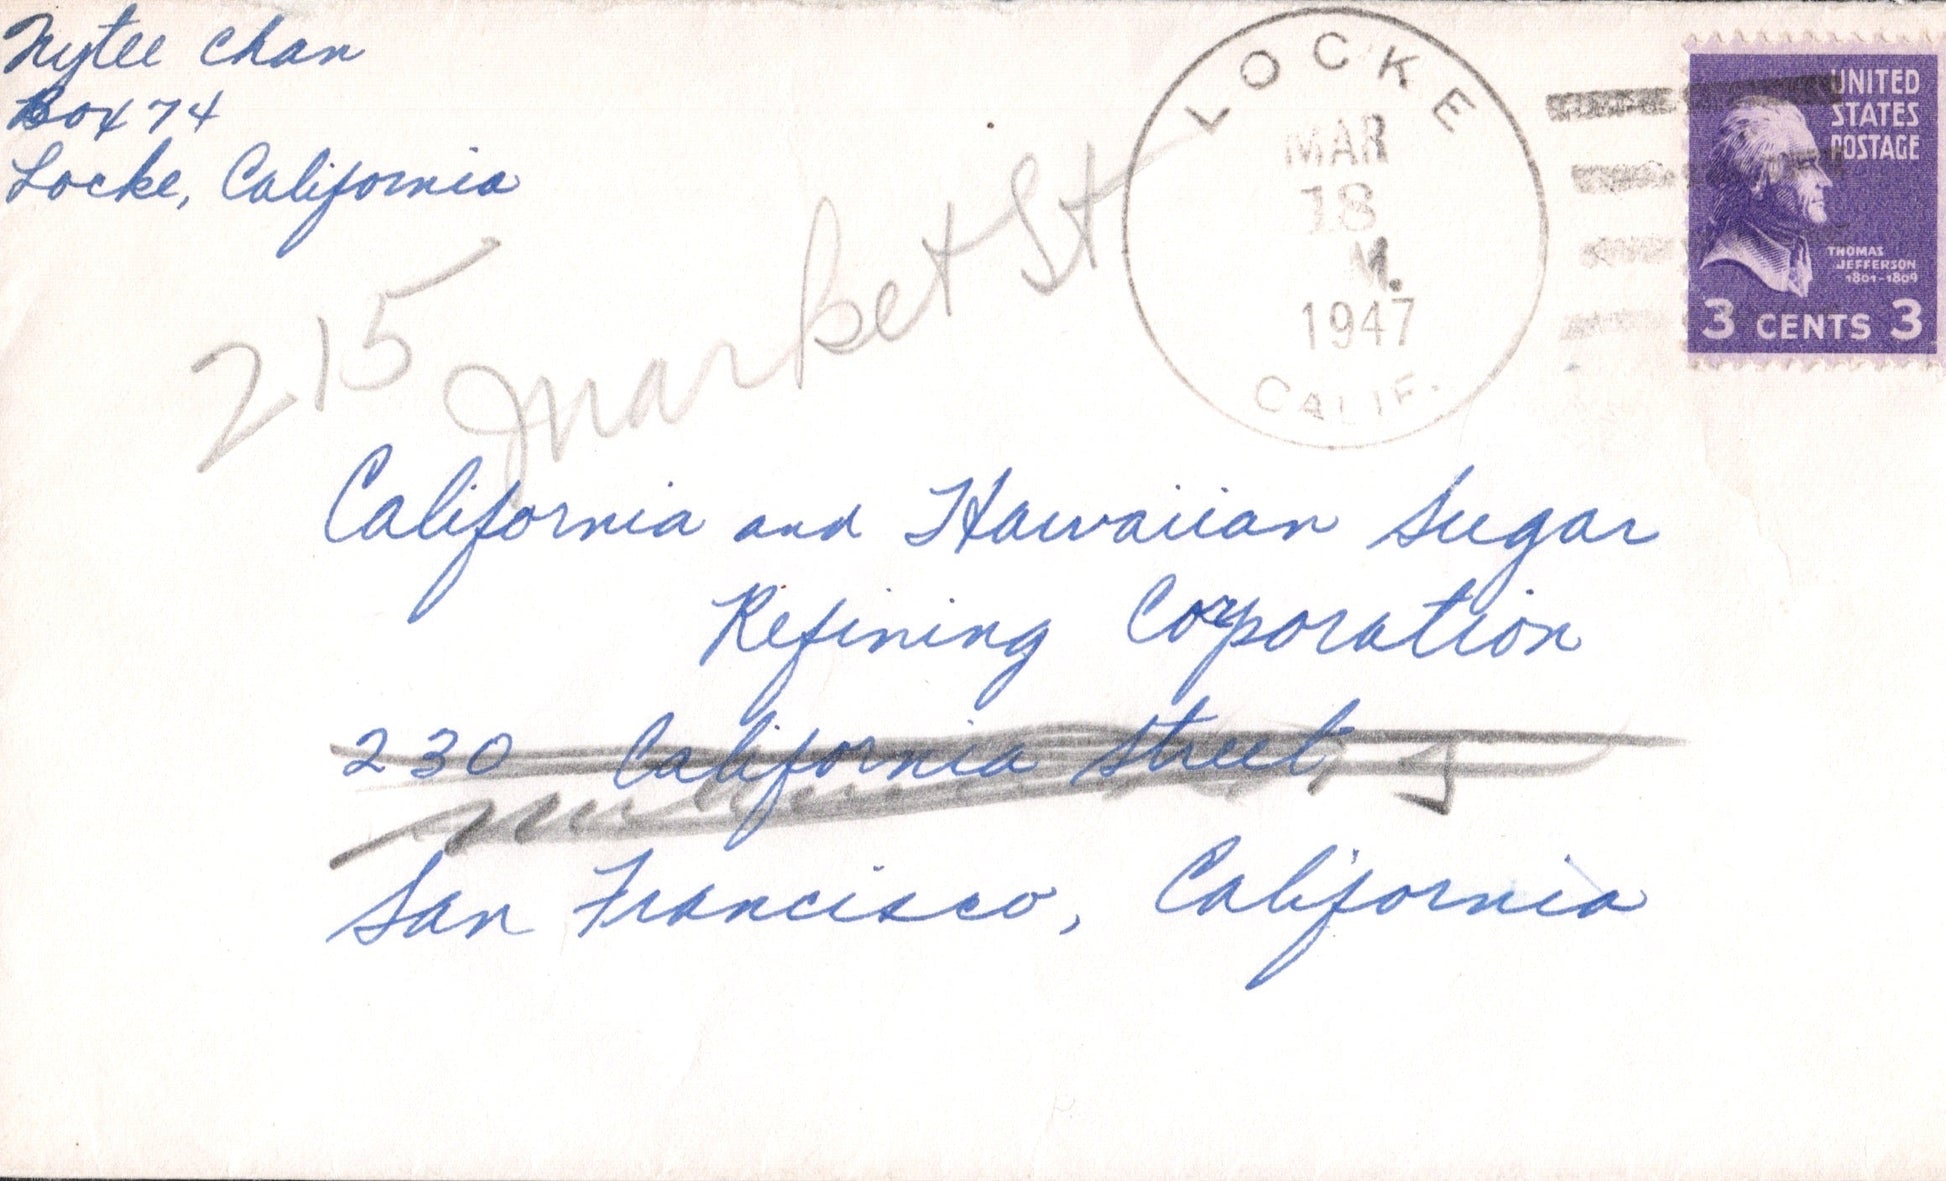 Nytee Chan
Box 74
Locke, California
LOCKE
MAR
18
M.
1947
CALIF.
UNITED
STATES
POSTAGE
THOMAS
JEFFERSON
1801-1809
3 CENTS 3
215 Market St
California and Hawaiian Sugar
Refining Corporation
230 California Street,
San Francisco, California